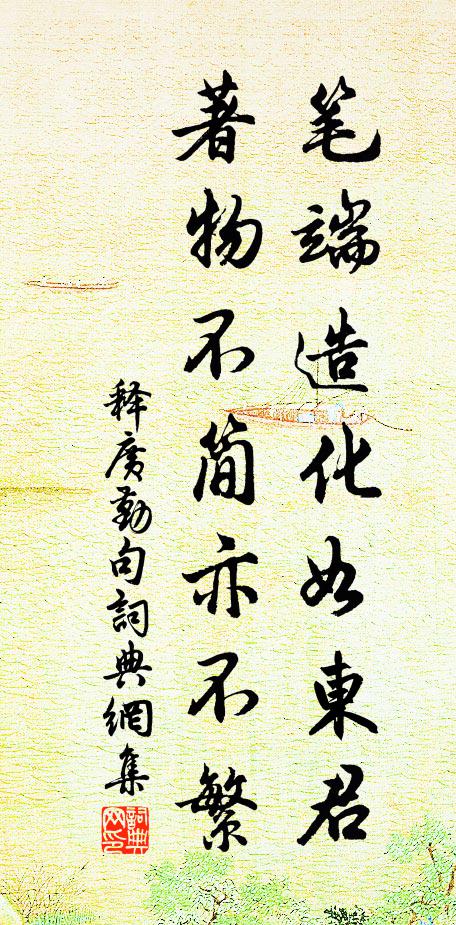 笔端造化如東君
著物不简亦不繁
释廣勤句詞典網集
詞典网印